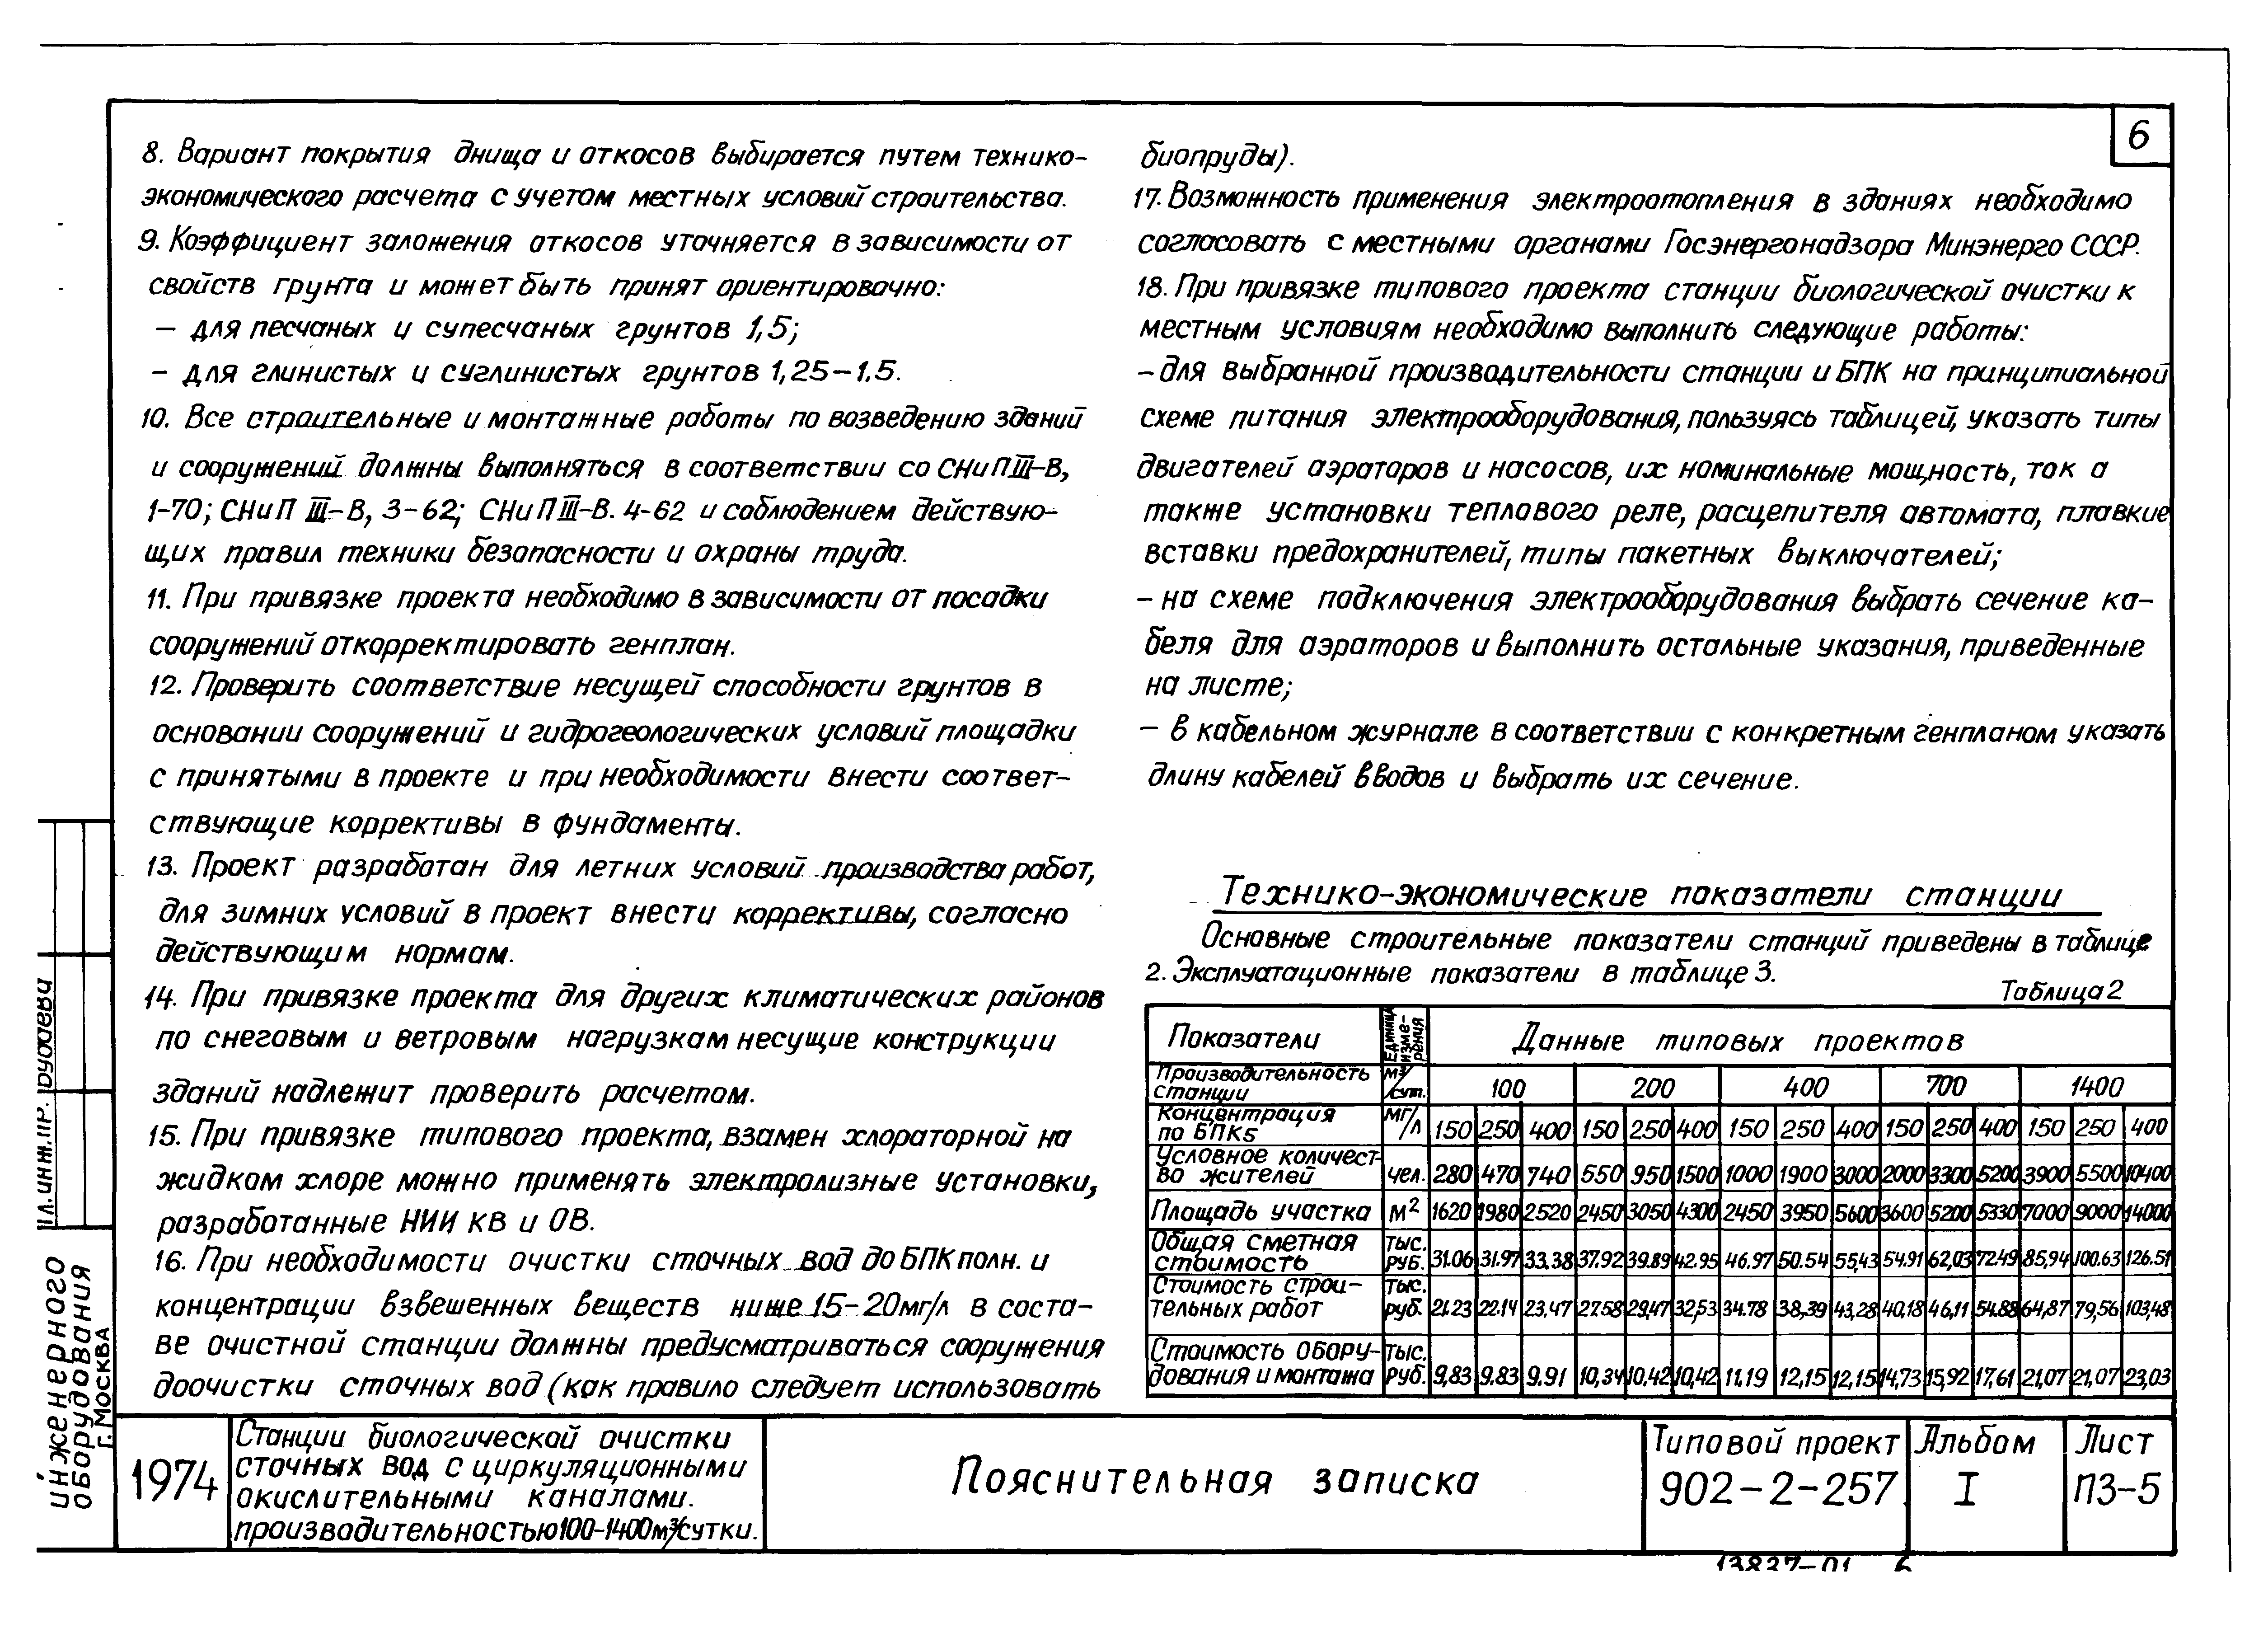 6
8. Вариант покрытия днища и откосов выбирается путем технико-
экономического расчета с учетом местных условий строительства.
9. Коэффициент заложения откосов уточняется в зависимости от
свойств грунта и может быть принят ориентировочно:
– для песчаных и супесчаных грунтов 1,5;
– для глинистых и суглинистых грунтов 1,25–1,5.
10. Все строительные и монтажные работы по возведению зданий
и сооружений должны выполняться в соответствии со СНиП III–В,
1–70; СНиП III–В, 3–62; СНиП III–В. 4–62 и соблюдением действую–
щих правил техники безопасности и охраны труда.
11. При привязке проекта необходимо в зависимости от посадки
сооружений откорректировать генплан.
12. Проверить соответствие несущей способности грунтов в
основании сооружений и гидрогеологических условий площадки
с принятыми в проекте и при необходимости внести соответ–
ствующие коррективы в фундаменты.
13. Проект разработан для летних условий производства работ,
для зимних условий в проект внести коррективы, согласно
действующим нормам.
14. При привязке проекта для других климатических районов
по снеговым и ветровым нагрузкам несущие конструкции
зданий надлежит проверить расчетом.
15. При привязке типового проекта, взамен хлораторной на
жидком хлоре можно применять электролизные установки,
разработанные НИИ КВ и ОВ.
16. При необходимости очистки сточных вод до БПК полн. и
концентрации взвешенных веществ ниже 15–20 мг/л в соста–
ве очистной станции должны предусматриваться сооружения
доочистки сточных вод (как правило следует использовать
биопруды).
17. Возможность применения электроотопления в зданиях необходимо
согласовать с местными органами Госэнергонадзора Минэнерго СССР.
18. При привязке типового проекта станции биологической очистки к
местным условиям необходимо выполнить следующие работы:
– для выбранной производительности станции и БПК на принципиальной
схеме питания электрооборудования, пользуясь таблицей, указать типы
двигателей аэраторов и насосов, их номинальные мощность, ток а
также установки теплового реле, расцепителя автомата, плавкие
вставки предохранителей, типы пакетных выключателей;
– на схеме подключения электрооборудования выбрать сечение ка–
беля для аэраторов и выполнить остальные указания, приведенные
на листе;
– в кабельном журнале в соответствии с конкретным генпланом указать
длину кабелей вводов и выбрать их сечение.
Технико-экономические показатели станции
Основные строительные показатели станций приведены в таблице
2. Эксплуатационные показатели в таблице 3.
Таблица 2
Показатели Единица изме–рения Данные типовых проектов
Производительность станции м³/сут. 100 200 400 700 1400
Концентрация по БПК5 мг/л 150 250 400 150 250 400 150 250 400 150 250 400 150 250 400
Условное количест–во жителей чел. 280 470 740 550 950 1500 1000 1900 3000 2000 3300 5200 3900 5500 10400
Площадь участка м² 1620 1980 2520 2450 3050 4300 2450 3950 5600 3600 5200 5330 7000 9000 14000
Общая сметная стоимость тыс. руб. 31.06 31.97 33.38 37.92 39.89 42.95 46.97 50.54 55,43 54.91 62,03 72.49 85,94 100.63 126.51
Стоимость строи–тельных работ тыс. руб. 21.23 22.14 23,47 27.58 29,47 32,53 34.78 38,39 43,28 40,18 46,11 54.88 64,87 79,56 103,48
Стоимость обору–дования и монтажа тыс. руб. 9,83 9.83 9.91 10,34 10,42 10,42 11.19 12,15 12,15 14,73 15,92 17,61 21,07 21,07 23,03
гл. инж. пр.
инженерного
оборудования
г. Москва
1974
Станции биологической очистки
сточных вод с циркуляционными
окислительными каналами.
производительностью 100–1400 м³/сутки.
Пояснительная записка
Типовой проект
902–2–257
Альбом
I
Лист
ПЗ–5
13837–01 6